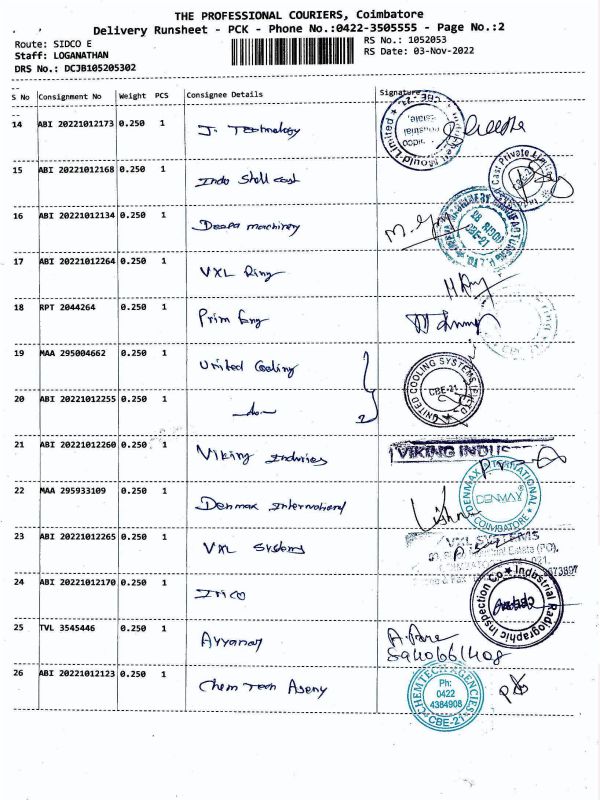 THE PROFESSIONAL COURIERS, Coimbatore
Delivery Runsheet - PCK - Phone No.:0422-3505555 - Page No.:2
Route: SIDCO E
RS No.: 1052053
Staff: LOGANATHAN
RS Date: 03-Nov-2022
DRS No.: DCJB105205302
S No Consignment No Weight PCS Consignee Details Signature
14 ABI 20221012173 0.250 1 J. Technology
15 ABI 20221012168 0.250 1 Indo Shell cast
16 ABI 20221012134 0.250 1 Deepa machinery
17 ABI 20221012264 0.250 1 VXL Ring
18 RPT 2044264 0.250 1 Prim Eng
19 MAA 295004662 0.250 1 United Cooling
UNITED COOLING SYSTEMS (P) LTD
CBE-21
20 ABI 20221012255 0.250 1 -do- 2
21 ABI 20221012260 0.250 1 Viking Industries
VIKING INDUS
22 MAA 295933109 0.250 1 Denmax International
DENMAX INTERNATIONAL
DENMAX®
COIMBATORE
23 ABI 20221012265 0.250 1 VXL Systems
VXL SYSTEMS
24 ABI 20221012170 0.250 1 Irico
Industrial Radiographic Inspection Co
25 TVL 3545446 0.250 1 Ayyanar
8940661408
26 ABI 20221012123 0.250 1 Chem Tech Ageny
CHEMTECH AGENCIES
Ph:
0422
4384908
CBE-21